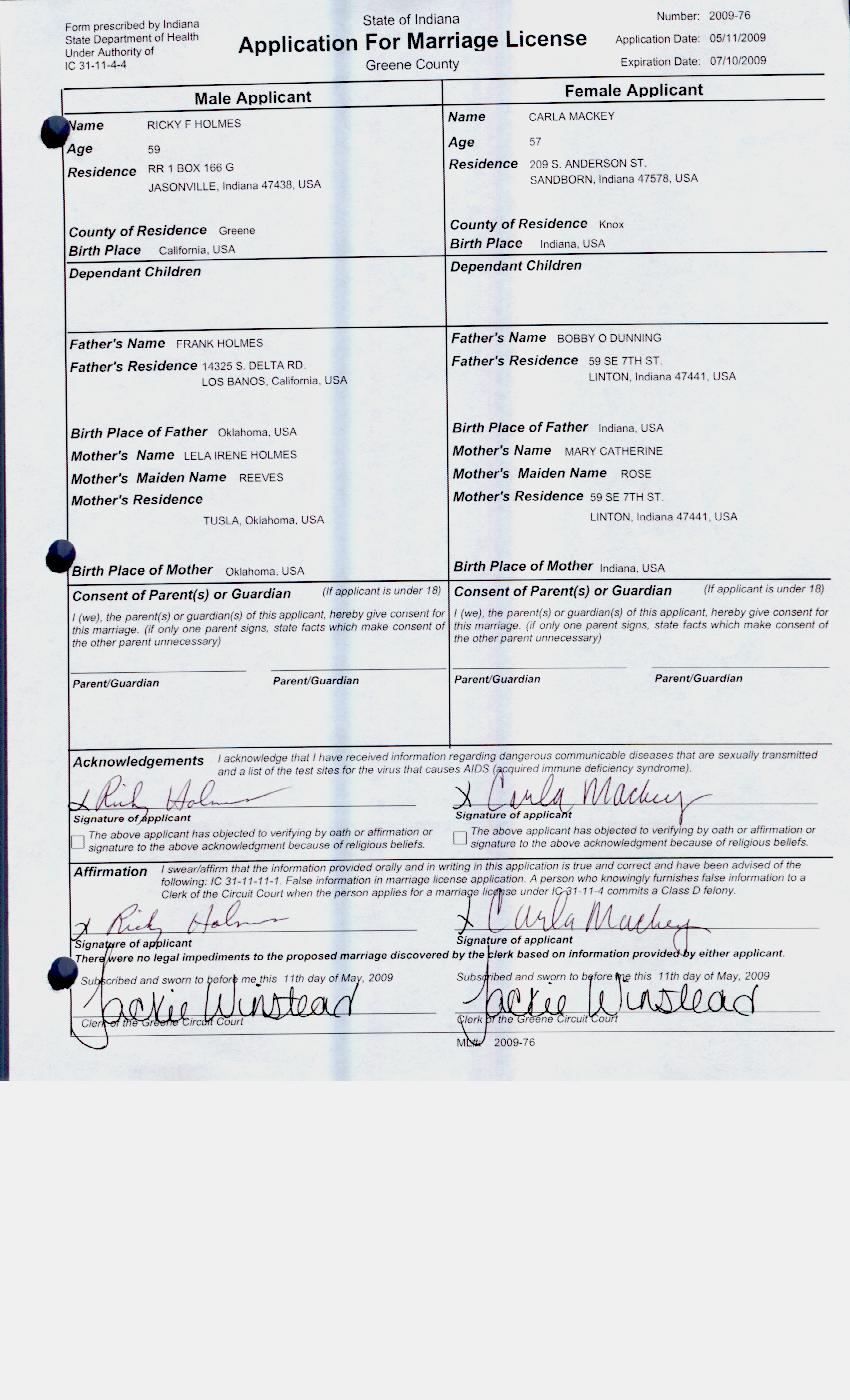 Form prescribed by Indiana
State Department of Health
Under Authority of
IC 31-11-4-4
State of Indiana
Application For Marriage License
Greene County
Number: 2009-76
Application Date: 05/11/2009
Expiration Date: 07/10/2009
Male Applicant
Name RICKY F HOLMES
Age 59
Residence RR 1 BOX 166 G
JASONVILLE, Indiana 47438, USA
County of Residence Greene
Birth Place California, USA
Dependant Children
Father's Name FRANK HOLMES
Father's Residence 14325 S. DELTA RD.
LOS BANOS, California, USA
Birth Place of Father Oklahoma, USA
Mother's Name LELA IRENE HOLMES
Mother's Maiden Name REEVES
Mother's Residence
TUSLA, Oklahoma, USA
Birth Place of Mother Oklahoma, USA
Consent of Parent(s) or Guardian (If applicant is under 18)
I (we), the parent(s) or guardian(s) of this applicant, hereby give consent for
this marriage. (if only one parent signs, state facts which make consent of
the other parent unnecessary)
Parent/Guardian Parent/Guardian
Female Applicant
Name CARLA MACKEY
Age 57
Residence 209 S. ANDERSON ST.
SANDBORN, Indiana 47578, USA
County of Residence Knox
Birth Place Indiana, USA
Dependant Children
Father's Name BOBBY O DUNNING
Father's Residence 59 SE 7TH ST.
LINTON, Indiana 47441, USA
Birth Place of Father Indiana, USA
Mother's Name MARY CATHERINE
Mother's Maiden Name ROSE
Mother's Residence 59 SE 7TH ST.
LINTON, Indiana 47441, USA
Birth Place of Mother Indiana, USA
Consent of Parent(s) or Guardian (If applicant is under 18)
I (we), the parent(s) or guardian(s) of this applicant, hereby give consent for
this marriage. (if only one parent signs, state facts which make consent of
the other parent unnecessary)
Parent/Guardian Parent/Guardian
Acknowledgements I acknowledge that I have received information regarding dangerous communicable diseases that are sexually transmitted
and a list of the test sites for the virus that causes AIDS (acquired immune deficiency syndrome).
X Ricky Holmes X Carla Mackey
Signature of applicant Signature of applicant
The above applicant has objected to verifying by oath or affirmation or
signature to the above acknowledgment because of religious beliefs.
The above applicant has objected to verifying by oath or affirmation or
signature to the above acknowledgment because of religious beliefs.
Affirmation I swear/affirm that the information provided orally and in writing in this application is true and correct and have been advised of the
following: IC 31-11-11-1. False information in marriage license application. A person who knowingly furnishes false information to a
Clerk of the Circuit Court when the person applies for a marriage license under IC 31-11-4 commits a Class D felony.
X Ricky Holmes X Carla Mackey
Signature of applicant Signature of applicant
There were no legal impediments to the proposed marriage discovered by the clerk based on information provided by either applicant.
Subscribed and sworn to before me this 11th day of May, 2009 Subscribed and sworn to before me this 11th day of May, 2009
Jackie Winstead Jackie Winstead
Clerk of the Greene Circuit Court Clerk of the Greene Circuit Court
ML#: 2009-76